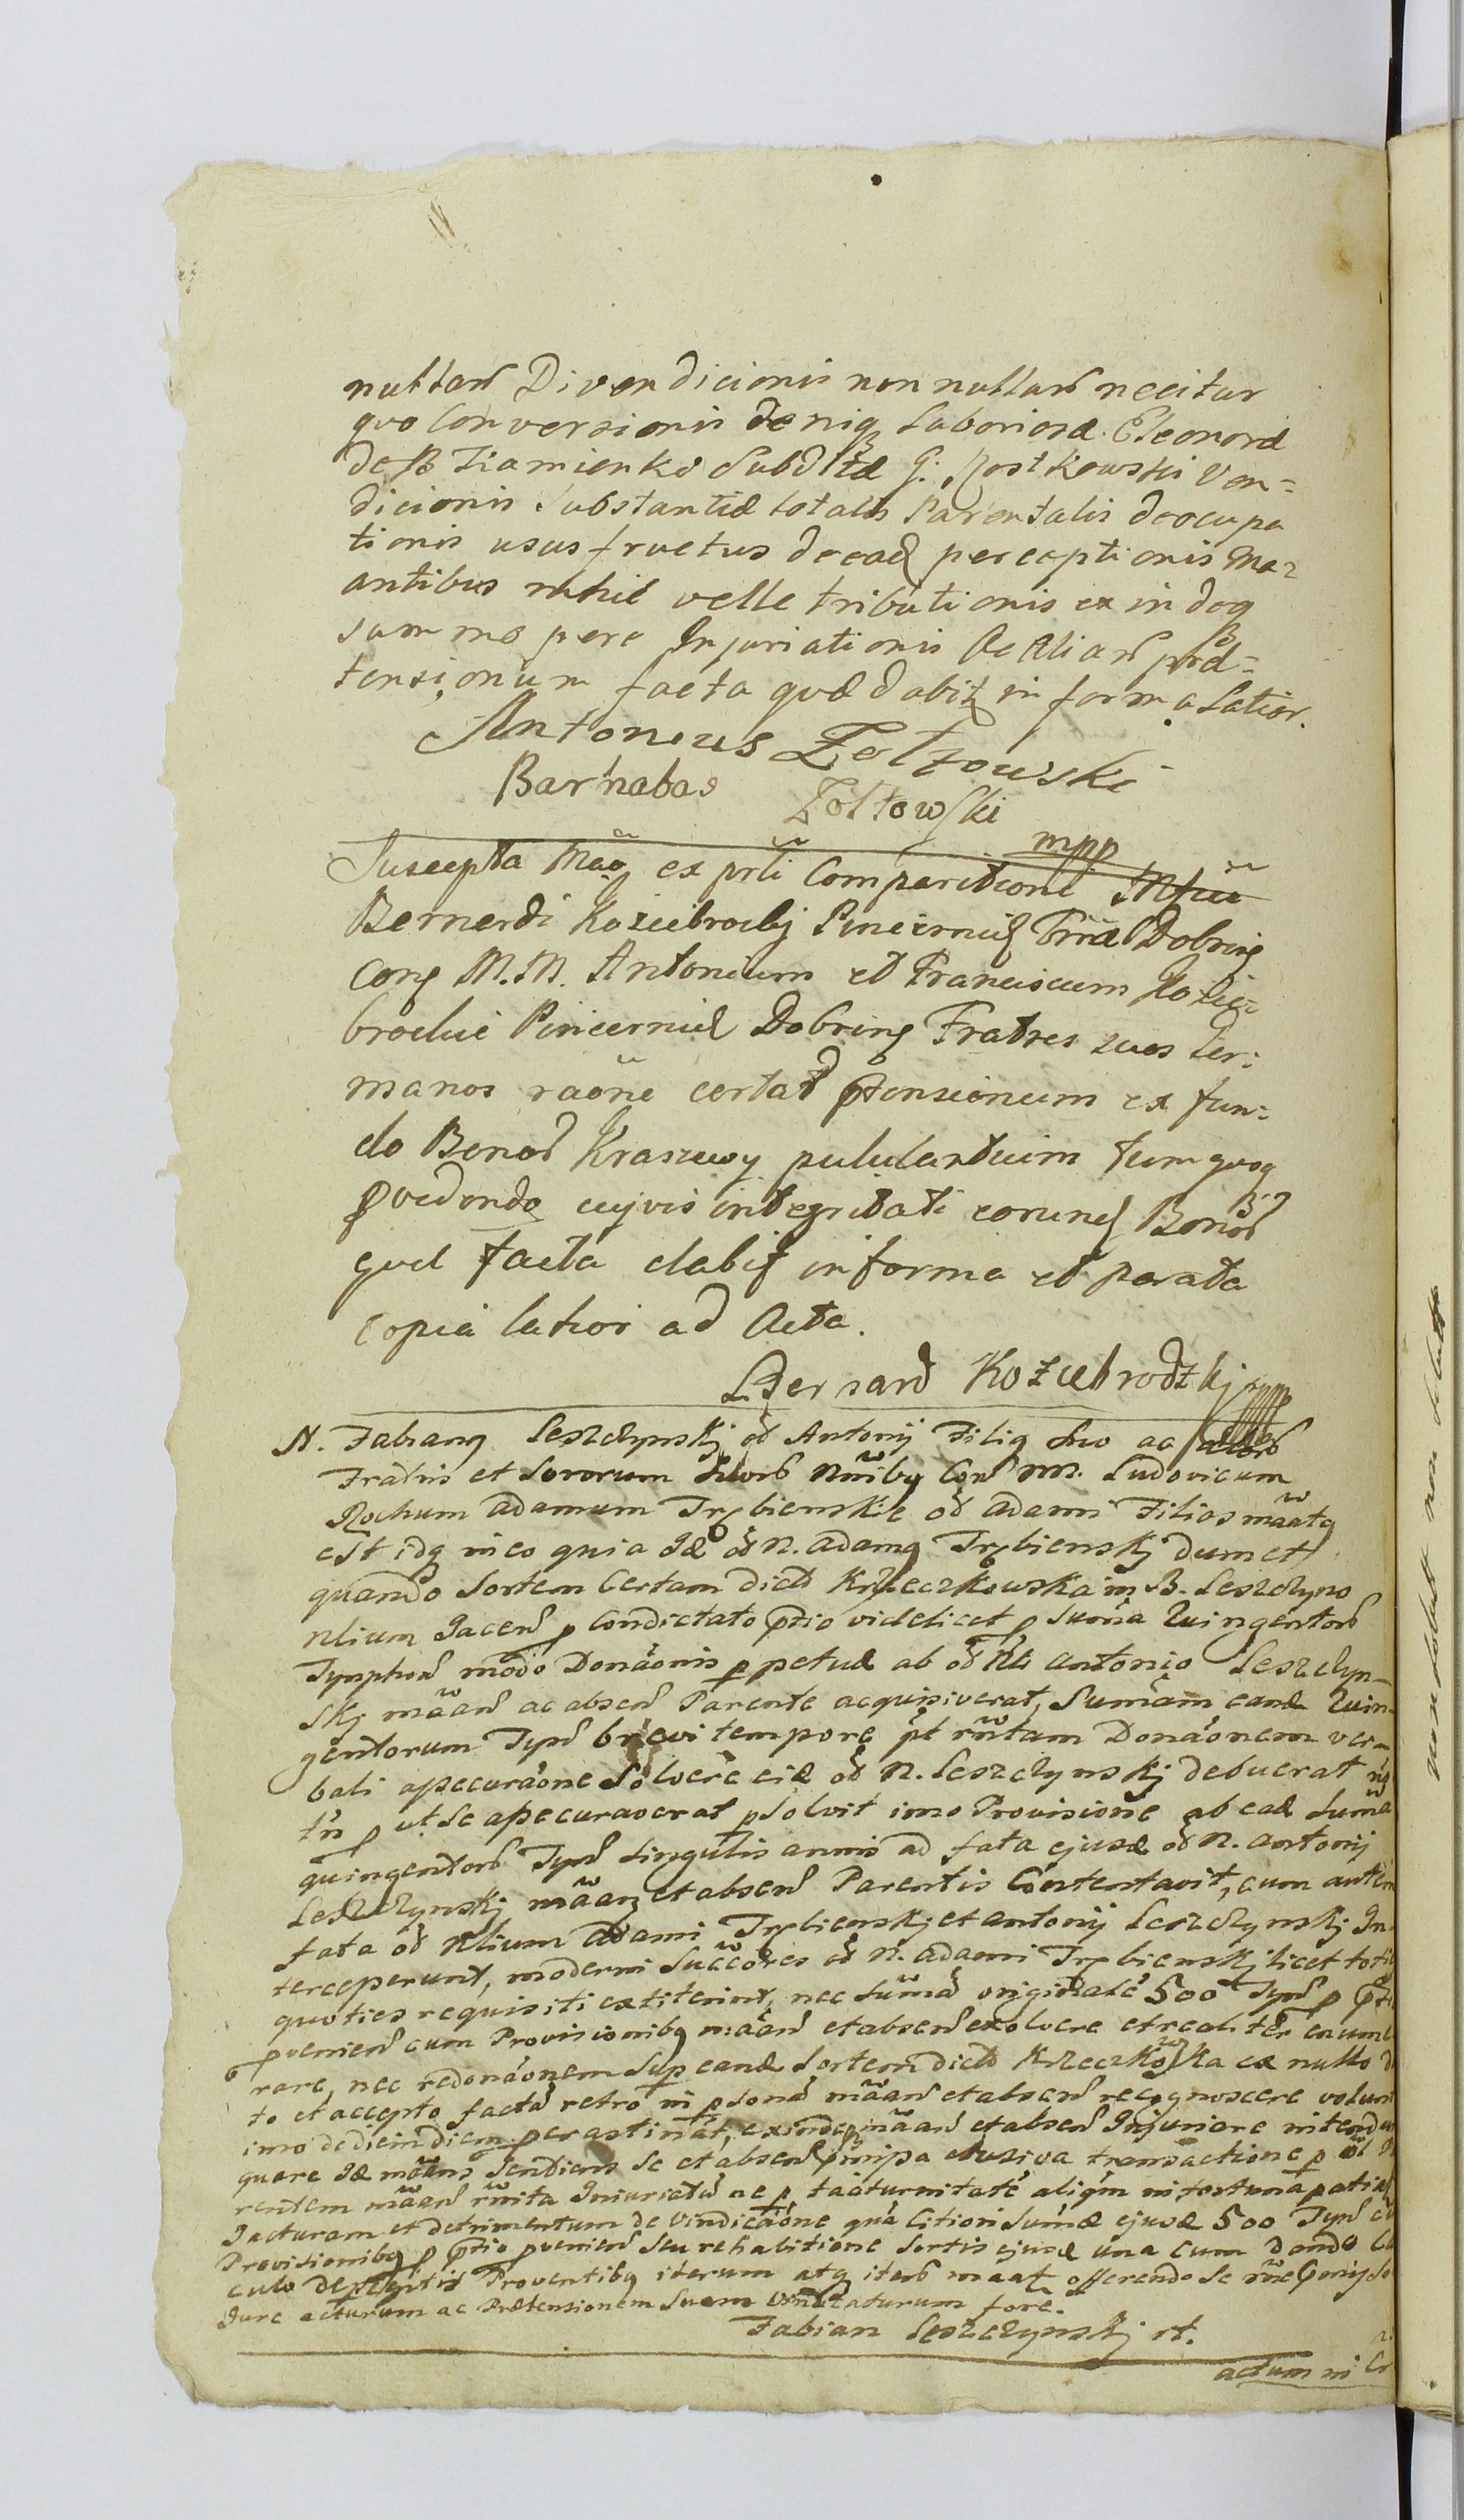 nullarū Divendicionis non nullarū necitur
quo Conversionis deniq Laboriosæ Eleonoræ
de B Ziamienko Subdtæ G: Rostkowski Ven=
dicionis Substantiæ totalis Parentalis deocupa
tionis usus fructus deead perceptionis Ma=
antibus nihil velle tributionis exindeq
summo pere Injuriationis Ac Aliarū præ=
tensionum facta quæ dabit in forma Latior.
Antonius Zołtowski
Barnabas Zołtowski
mpp
Suscepta Mao ex prti Comparitione
Bernardi Koziebrocky Pincernid Træ Dobring
Cong M.M. Antonium et Franciscum Kozie=
brockie Pincernid Dobring Fratres suos Ger=
manos raone certarū ptensionum ex fun=
do Bonorū Kraszewy pululantium tum quoq
pvedendo cujvis integritati eorund Bonorū
quæ facta dabit in forma et parata
copia latior ad Acta.
Bernard Koziebrodzkj mpp
N. Fabiang Leszczynskj od Antonij Filig suo ac
Fratris et Sororum Suorū Nnibg Con NN. Ludovicum
Rochum adamum Trzbienskie od adami Filios maatg
est idq in eo quia Id od N. adamg Trzbienskj dum et
quando Sortem Certam dictā Krzeczkowska in B. Leszczyno
Nlium Jacen p Condictato ptio videlicet p Suma Quingentorū
Tynphon modo Donaonis ppetuæ ab od Nli antonio Leszczyn-
skj maan ac absen Parente acquisiverat, Sumam eand Quin-
gentorum Tynf brevi tempore pt rntam Donaonem ver-
bali apecuraone Solvere eid od N. Leszczynskj debuerat nq
tn put se apecuraverat psolvit imo Provisione ab ead Suma
quingentorū Tynf Singulis annis ad fata ejusd od N. antonij
Leszczynskj maanq et absen Parentis Contentavit, cum autem
fata od Nlium adami Trzbienskj et antonij Leszczynskj In-
terceperunt, moderni Succores od N. adami Trzbienskj licet totie
quoties requisiti extiterint, nec Sumā originalē 500 Tynf p pti
pvenien cum Provisionibg maan et absen exolvere et realiter enume
rare, nec redonaonem Sup eand Sortem dictā Krzeczkowska ex nullo d
to et accepto factā retro in psonā maan et absen recognoscere volun
imo dediein diem perastināt, exindeq maan et absen Injuriare intend
quare Id maans Sendiens Se et absen pmipa elusiva transactione p od P
rentem maan rnita Injuriatū ne p taciturnitatē aliqm in fortuna patia
Jacturam et detrimentum de Vindicaone quā Citiori Sumæ ejusd 500 Tynf c
Provisionibg p ptio pvenien Seu rehabitione Sortis ejusd una cum dando Ca
culo depegitis Proventibg iterum atq iterū maat offerendo Se rne
Jure acturum ac Prætensionem Suam Vindicaturum fore.
Fabian Leszczynskj rt.
actum in